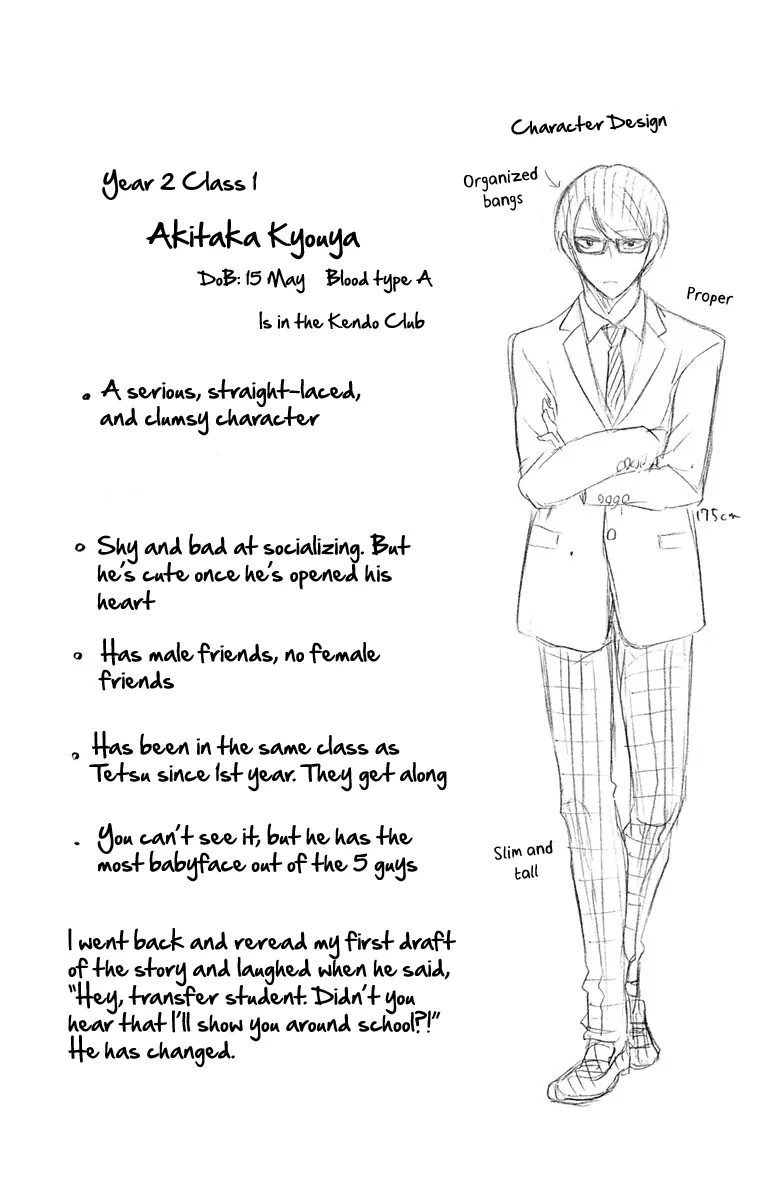 Character Design
Year 2 Class 1
Organized
bangs
Akitaka Kyouya
DoB: 15 May Blood type A
Proper
Is in the Kendo Club
A serious, straight-laced,
and clumsy character
175cm
Shy and bad at socializing. But
he's cute once he's opened his
heart
Has male friends, no female
friends
Has been in the same class as
Tetsu since 1st year. They get along
You can't see it, but he has the
most babyface out of the 5 guys
Slim and
tall
I went back and reread my first draft
of the story and laughed when he said,
"Hey, transfer student. Didn't you
hear that I'll show you around school?!"
He has changed.